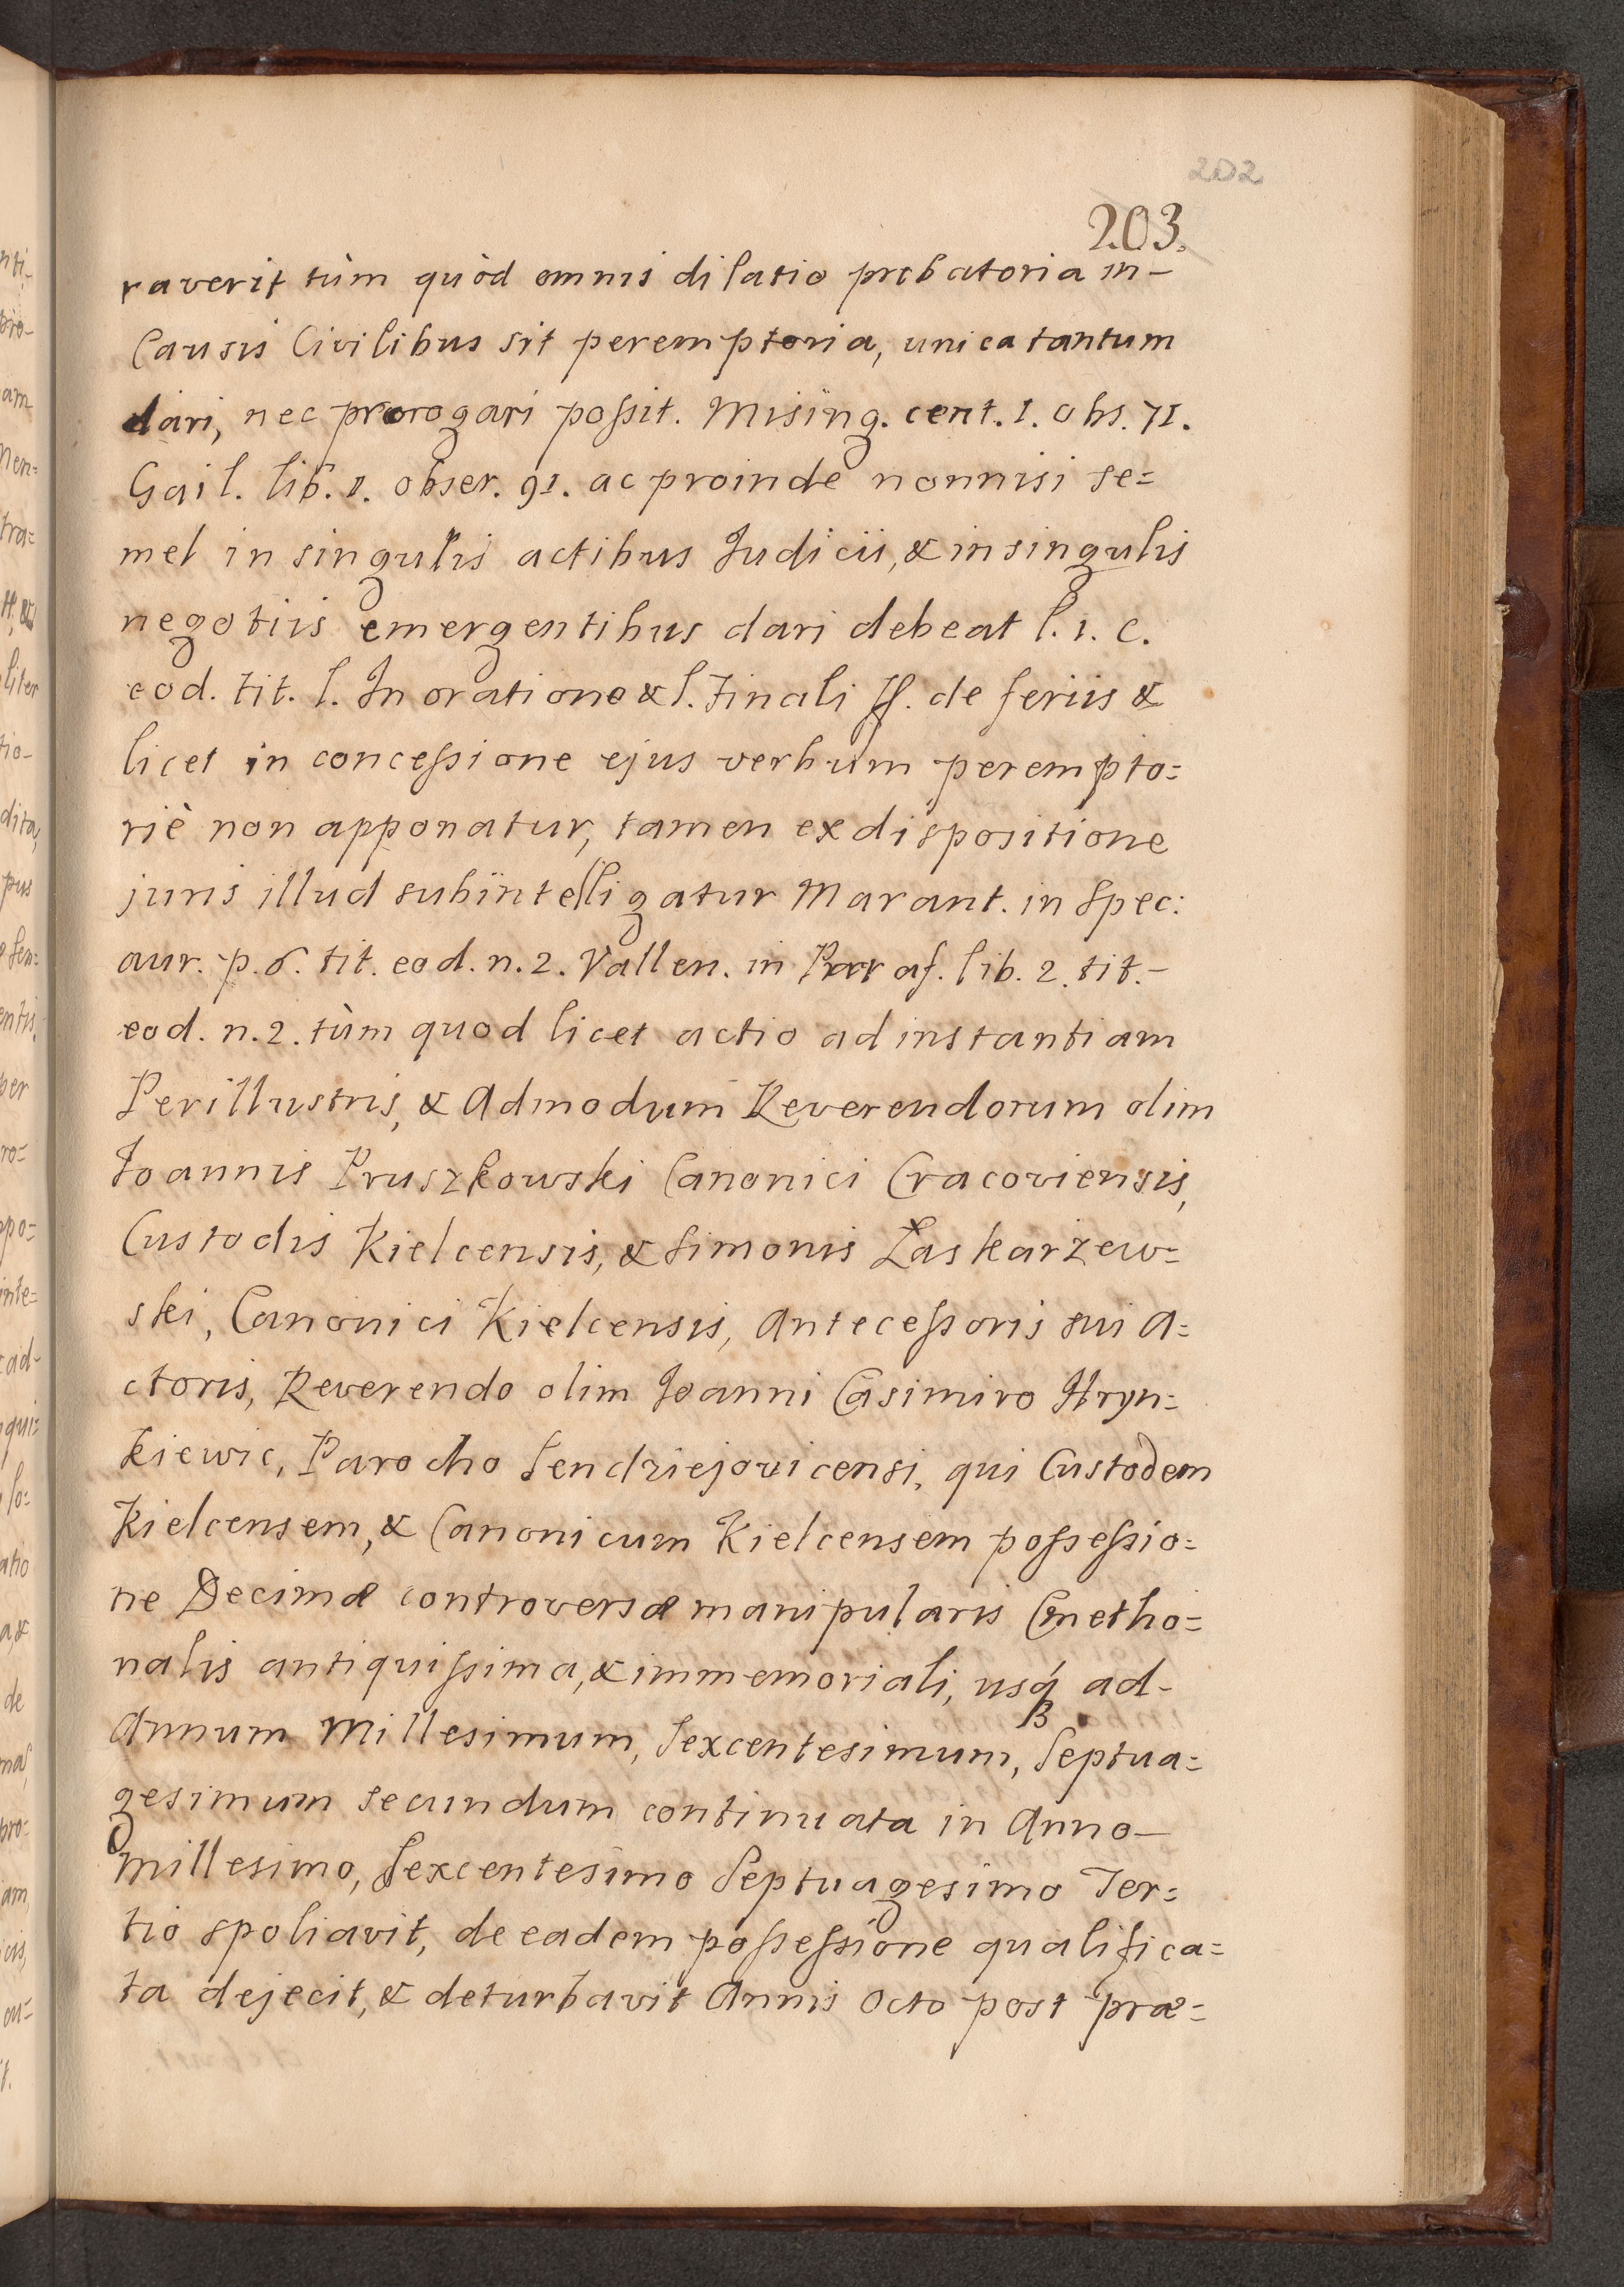 202
203.
raverit tùm quòd omnis dilatio probatoria in-
Causis Civilibus sit peremptoria, unica tantum
dari, nec prorogari possit. Mising. cent. 1. obs. 71.
Gail. lib. 1. obser. 91. ac proinde nonnisi se=
mel in singulis actibus Judicii, & in singulis
negotiis emergentibus dari debeat l. 1. C.
eod. tit. l. In oratione & l. Finali ff. de feriis &
licet in concessione ejus verbum perempto=
riè non apponatur, tamen ex dispositione
juris illud subintelligatur Marant. in Spec:
aur. p. 6. tit. eod. n. 2. Vallen. in Paraf. lib. 2. tit.-
eod. n. 2. tùm quod licet actio ad instantiam
Perillustris, & Admodum Reverendorum olim
Joannis Pruszkowski Canonici Cracoviensis,
Custodis Kielcensis, & Simonis Łaskarzew=
ski, Canonici Kielcensis, Antecessoris sui A=
ctoris, Reverendo olim Joanni Casimiro Hryn=
kiewic, Parocho Sendziejovicensi, qui Custodem
Kielcensem, & Canonicum Kielcensem possessio=
ne Decimæ controversæ manipularis Cmetho=
nalis antiquissima, & immemoriali, usq́ ad-
Annum Millesimum, Sexcentesimum, Septua=
gesimum secundum continuata in Anno-
Millesimo, Sexcentesimo Septuagesimo Ter=
tio spoliavit, de eadem possessione qualifica=
ta dejecit, & deturbavit Annis Octo post præ=